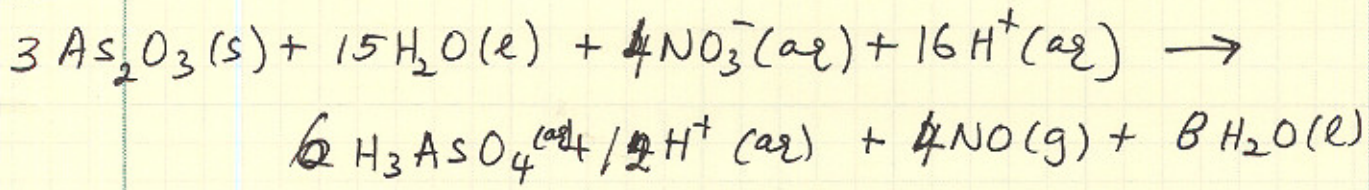 3 As₂O₃ (s) + 15 H₂O (l) + 4 NO₃⁻ (aq) + 16 H⁺ (aq) →
6 H₃AsO₄ (aq) + 12 H⁺ (aq) + 4 NO (g) + 8 H₂O (l)